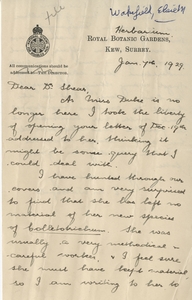 file
Wakefield, Elsie M
Herbarium,
ROYAL BOTANIC GARDENS,
KEW, SURREY.
All communications should be
addressed to—THE DIRECTOR.
Jan. 7th, 1929.
Dear Dr. Shear,
As Miss Duke is no
longer here I took the liberty
of opening your letter of Dec. 19th
addressed to her, thinking it
might be some query that I
could deal with.
I have hunted through our
covers and am very surprised
to find that she has left no
material of her new species
of Colletotrichum. She was
usually a very methodical &
careful worker, & I feel sure
she must have kept material
so I am writing to her to